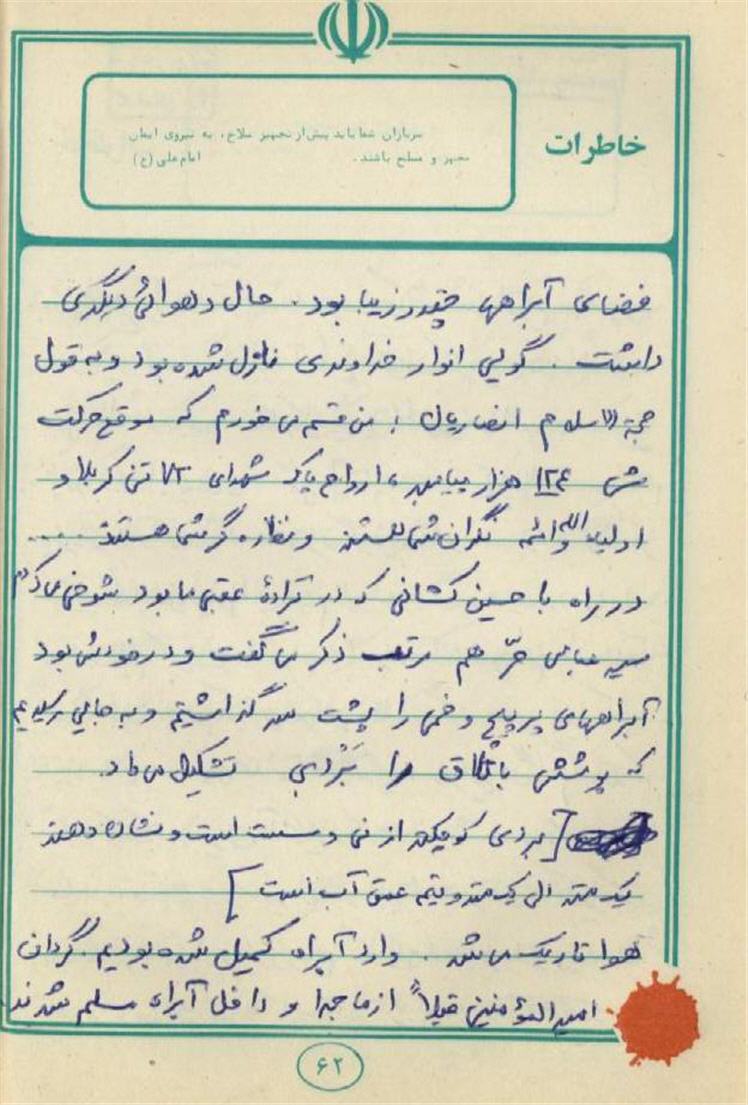 خاطرات
سربازان شما باید پیش از تجهیز سلاح، به نیروی ایمان
مجهز و مسلح باشند. امام علی (ع)
فضای آبراهها چقدر زیبا بود. حال و هوائی دیگری
داشت. گویی انوار خداوندی نازل شده بود و به قول
حجة الاسلام انصاریان؛ من قسم می خورم که موقع حرکت
شما ۱۲۴ هزار پیامبر، ارواح پاک شهدای ۷۲ تن کربلا و
اولیاء الله و ائمه نگران شما هستند و نظاره گر شما هستند ....
در راه با حسین کشانی که در ترادهٔ عقبی ما بود شوخی می کردم
سید عباس حرّ هم مرتب ذکر می گفت و در خودش بود
آبراههای پرپیچ و خمی را پشت سر گذاشتیم و به جایی رسیدیم
که پوشش باتلاق را بَرْدی تشکیل می داد.
[بردی کوچکتر از نی و سست است و نشان دهندهٔ
یک متر الی یک متر و نیم عمق آب است]
هوا تاریک می شد. وارد آبراه کمیل شده بودیم. گردان
امیرالمؤمنین قبلاً از ما جدا و داخل آبراه مسلم شدند
۶۲